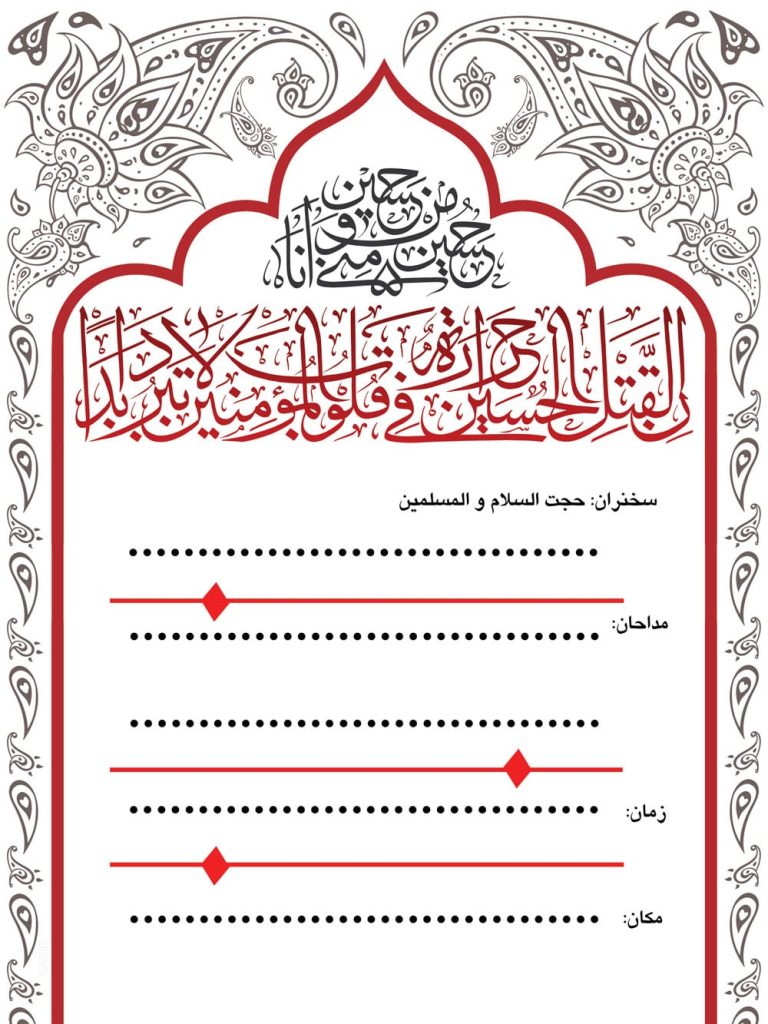 حسین منی و انا من حسین
اِنَّ لِقَتلِ الحُسَینِ حَرارَةً فی قُلوبِ المُؤمِنینَ لا تَبرُدُ اَبَدًا
سخنران: حجت السلام و المسلمین
مداحان:
زمان:
مکان: